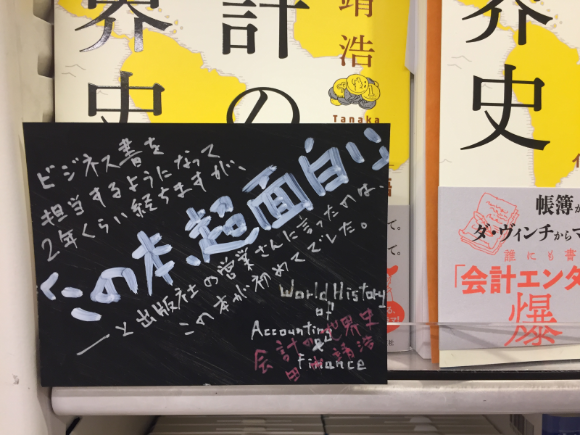 界史
計の
靖浩
Tanaka
界史
ビジネス書を
担当するようになって
2年くらい経ちますが、
「この本、超面白い」
―と出版社の営業さんに言ったのは、
この本が初めてでした。
World History
of
Accounting
&
Finance
会計の世界史
田中靖浩
帳簿が
ダ・ヴィンチからマ
誰にも書
「会計エンタ
爆